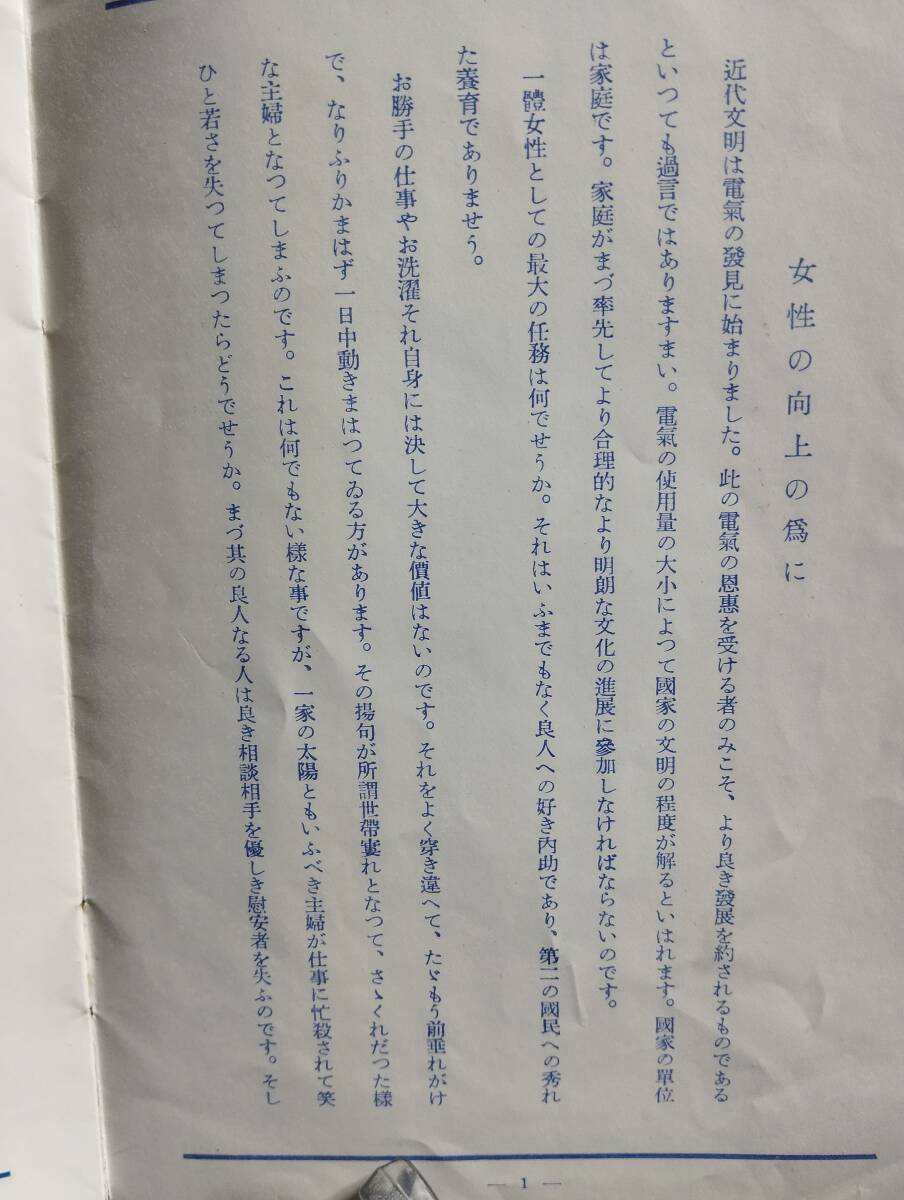 女性の向上の爲に
近代文明は電氣の發見に始まりました。此の電氣の恩惠を受ける者のみこそ、より良き發展を約されるものである
といつても過言ではありますまい。電氣の使用量の大小によつて國家の文明の程度が解るといはれます。國家の單位
は家庭です。家庭がまづ率先してより合理的なより明朗な文化の進展に參加しなければならないのです。
一體女性としての最大の任務は何でせうか。それはいふまでもなく良人への好き內助であり、第二の國民への秀れ
た養育でありませう。
お勝手の仕事やお洗濯それ自身には決して大きな價値はないのです。それをよく穿き違へて、たゞもう前垂れがけ
で、なりふりかまはず一日中動きまはつてゐる方があります。その揚句が所謂世帶窶れとなつて、さゝくれだつた樣
な主婦となつてしまふのです。これは何でもない樣な事ですが、一家の太陽ともいふべき主婦が仕事に忙殺されて笑
ひと若さを失つてしまつたらどうでせうか。まづ其の良人なる人は良き相談相手を優しき慰安者を失ふのです。そし
— 1 —